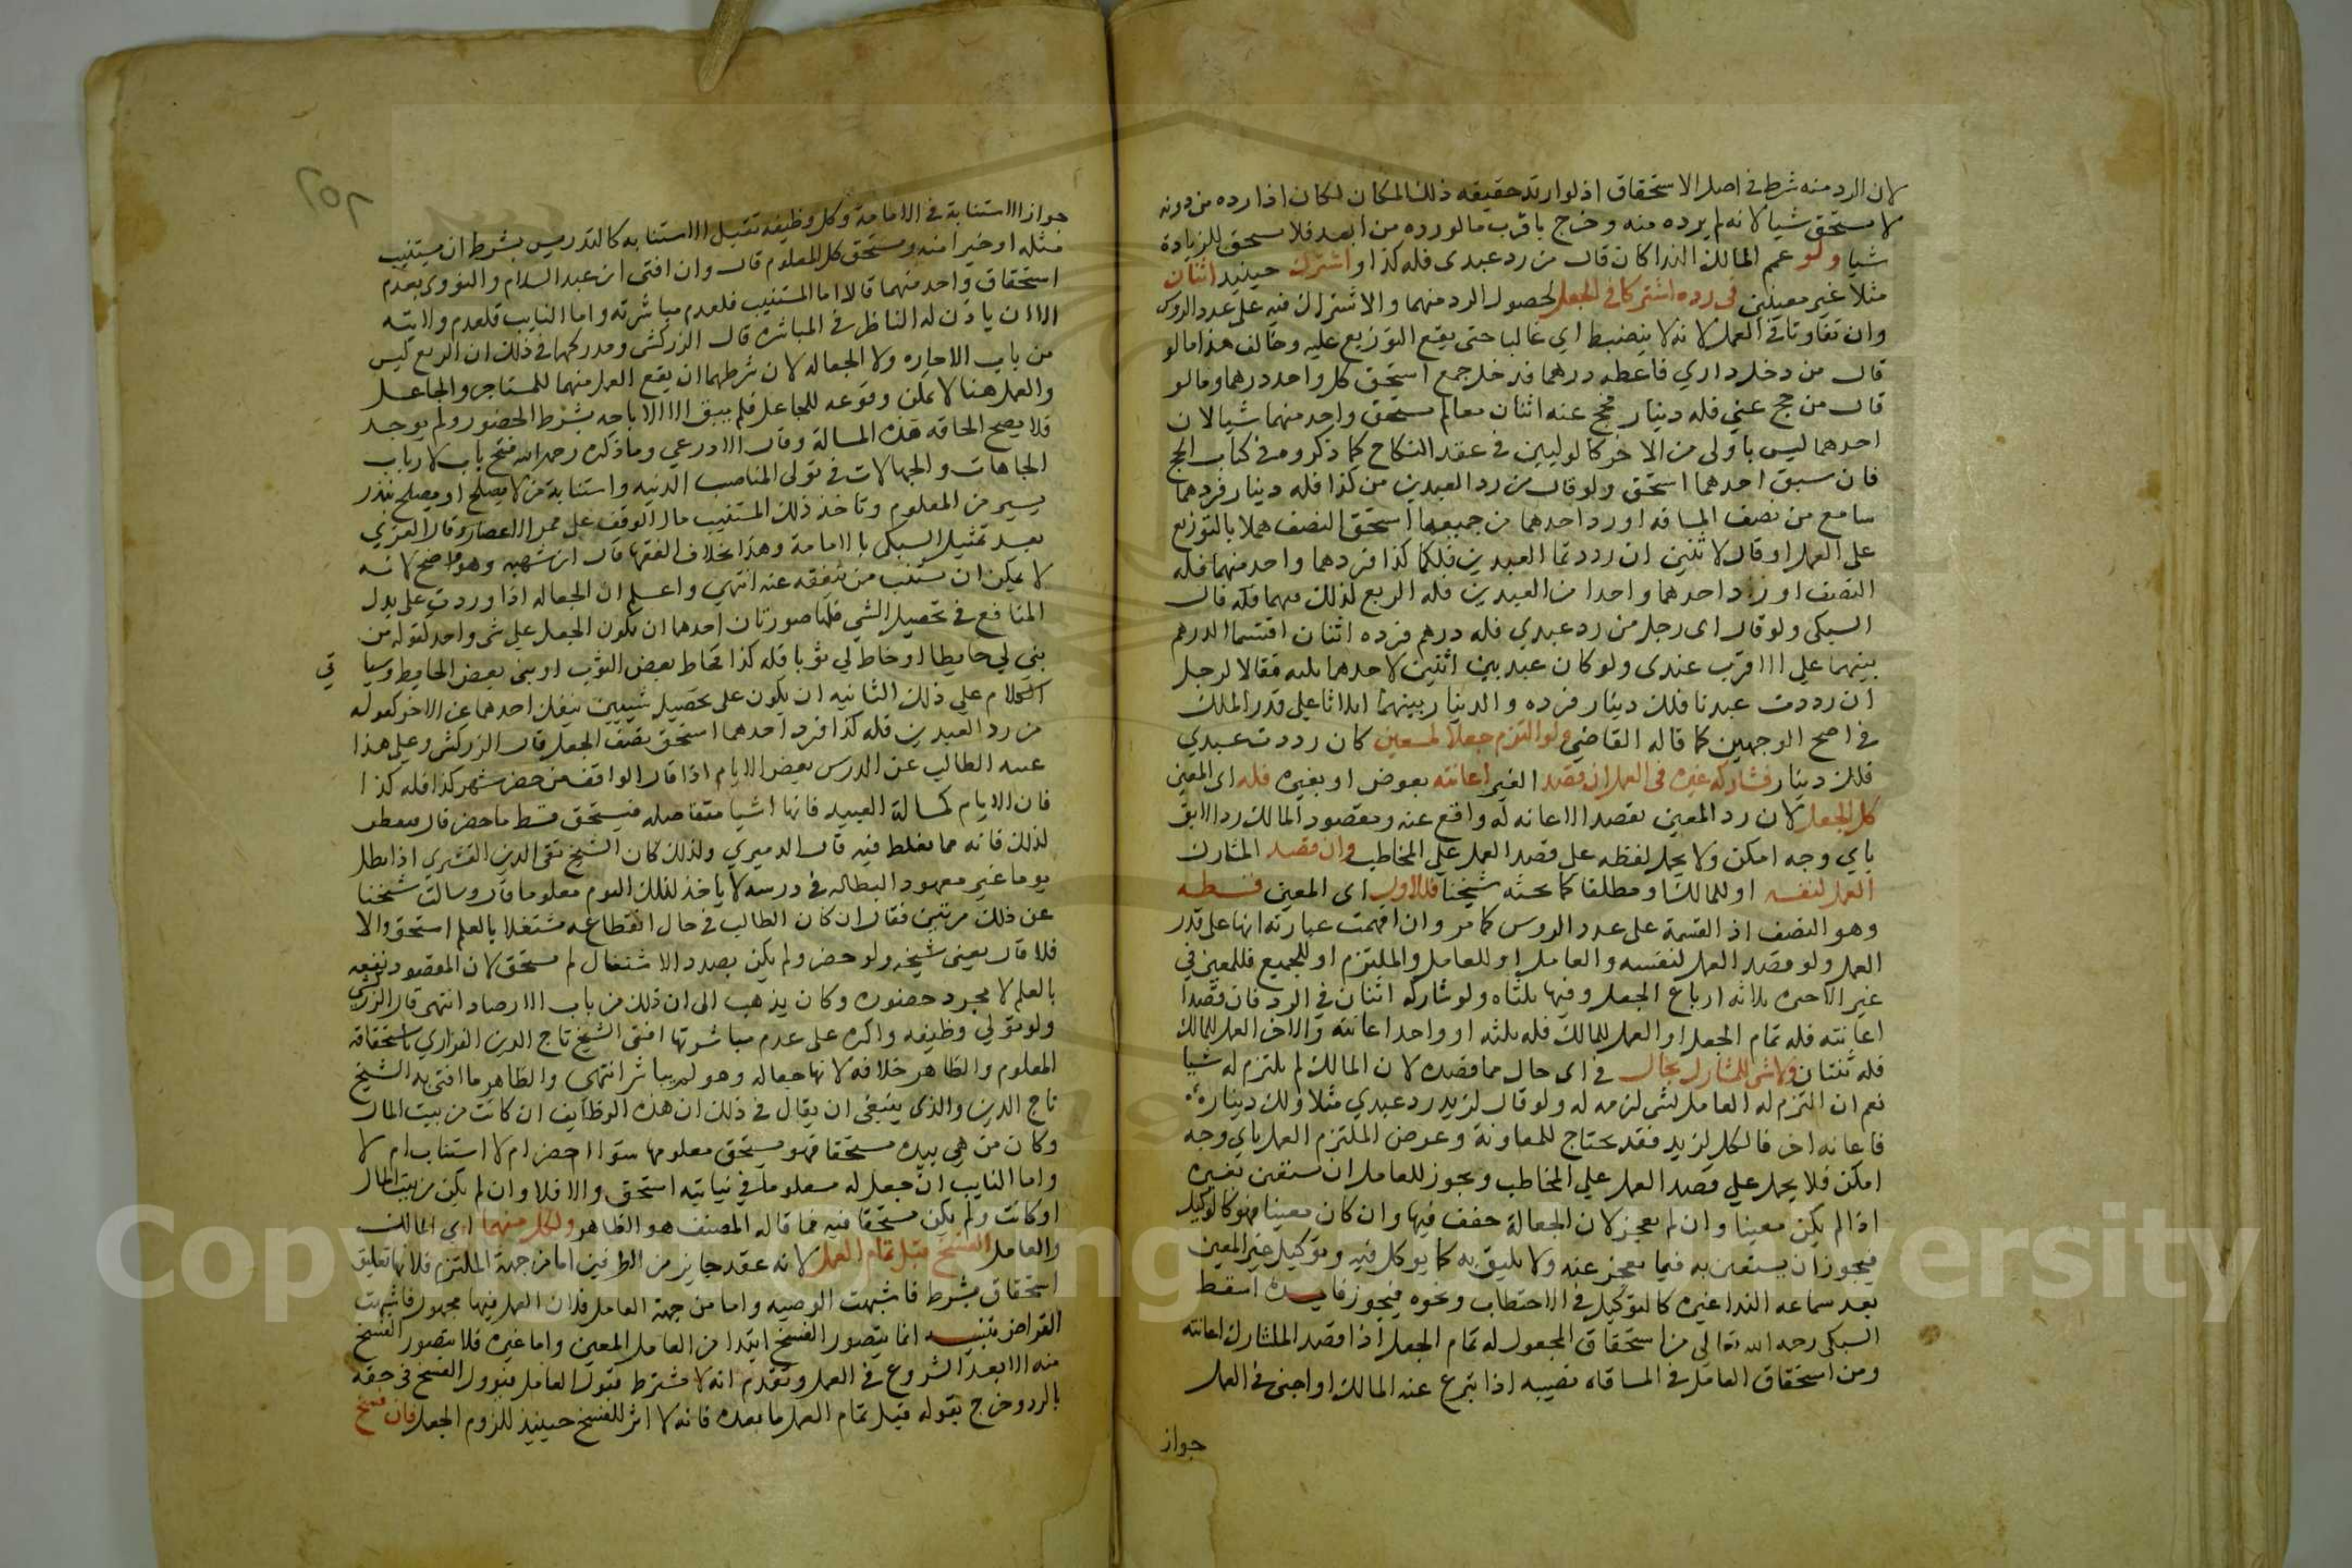 لان الرد منه شرط في اصل الاستحقاق اذ لو ارتد حقيقه ذلك المكان لكان اذا رده من دونه
لا يستحق شيا لانه لم يرده منه وخرج باقرب ما لو رده من ابعد فلا يستحق للزيادة
شيا ولو عمم المالك الندا كان قال من رد عبدى فله كذا واشترك حينيد اثنان
مثلا غير معينين في رده اشتركا في الجعل لحصول الرد منهما والاشتراك فيه على عدد الروس
وان تفاوتا في العمل لانه لا ينضبط اي غالبا حتى يقع التوزيع عليه وخالف هذا ما لو
قال من دخل داري فاعطه درهما فدخل جمع استحق كل واحد درهما وما لو
قال من حج عني فله دينار فحج عنه اثنان معا لم يستحق واحد منهما شيا لان
احدهما ليس باولى من الاخر كالوليين في عقد النكاح كما ذكروه في كتاب الحج
فان سبق احدهما استحق ولو قال من رد العبدين من كذا فله دينار فردهما
سامع من نصف المسافه او رد احدهما من جميعها استحق النصف عملا بالتوزيع
على العمل او قال لاثنين ان رددتما العبدين فلكما كذا فردهما واحد منهما فله
النصف او رد احدهما واحدا من العبدين فله الربع لذلك منهما فله قال
السبكى ولو قال اى رجل من رد عبدي فله درهم فرده اثنان اقتسما الدرهم
بينهما على الاقرب عندى ولو كان عبد بين اثنين لاحدهما ثلثه فقالا لرجل
ان رددت عبدنا فلك دينار فرده والدينار بينهما اثلاثا على قدر الملك
في اصح الوجهين كما قاله القاضي ولو التزم جعلا لمعين كان رددت عبدي
فلك دينار فشاركه غيره في العمل ان قصد الغير اعانته بعوض او بغيره فله اى المعين
كل الجعل لان رد المعين بقصد الاعانه له واقع عنه ومقصود المالك رد الابق
باي وجه امكن ولا يحمل لفظه على قصد العمل على المخاطب وان قصد المشارك
العمل لنفسه او للمالك او مطلقا كما بحثه شيخنا فللاول اى المعين قسطه
وهو النصف اذ القسمة على عدد الروس كما مر وان افهمت عبارته انها على قدر
العمل ولو قصد العمل لنفسه والعامل او للعامل والملتزم او للجميع فللمعين في
غير الاخيره ثلاثه ارباع الجعل وفيها ثلثاه ولو شاركه اثنان في الرد فان قصدا
اعانته فله تمام الجعل او العمل للمالك فله ثلثه او واحد اعانته والاخر العمل للمالك
فله ثلثان ولا شى للمشارك بحال في اى حال مما قصده لان المالك لم يلتزم له شيا
نعم ان التزم له العامل بشى لزمه له ولو قال لزيد رد عبدي مثلا ولك دينار
فاعانه اخر فالكل لزيد فقد يحتاج للمعاونة وغرض الملتزم العمل باي وجه
امكن فلا يحمل على قصد العمل على المخاطب ويجوز للعامل ان يستعين بغيره
اذا لم يكن معينا وان لم يعجز لان الجعالة خفف فيها وان كان معينا فهو كالوكيل
فيجوز ان يستعين به فيما يعجز عنه ولا يليق به كما يوكل فيه وتوكيل غير المعين
بعد سماعه الندا غيره كالتوكيل في الاحتطاب ونحوه فيجوز فايـــدة استنبط
السبكى رحمه الله تعالى من استحقاق المجعول له تمام الجعل اذا قصد المشارك اعانته
ومن استحقاق العامل في المساقاه نصيبه اذا تبرع عنه المالك او اجنبى في العمل
جواز
جواز الاستنابة في الامامة وكل وظيفه تقبل الاستنابه كالتدريس بشرط ان يستنيب
مثله او خيرا منه ويستحق كل المعلوم قال وان افتى ابن عبد السلام والنووى بعدم
استحقاق واحد منهما قالا اما المستنيب فلعدم مباشرته واما النايب فلعدم ولايته
الا ان ياذن له الناظر في المباشره قال الزركشى ومدركهما في ذلك ان الريع ليس
من باب الاجاره ولا الجعاله لان شرطهما ان يقع العمل منهما للمستاجر والجاعل
والعمل هنا لا يمكن وقوعه للجاعل فلم يبق الا الاباحه بشرط الحضور ولم يوجد
فلا يصح الحاقه هذه المسالة وقال الاذرعي وما ذكره رحمه الله فتح باب لارباب
الجاهات والجهالات في تولى المناصب الدنيه واستنابة من لا يصلح او يصلح بنذر
يسير من المعلوم وتاخذ ذلك المستنيب مال الوقف على ممر الاعصار وقال الغزي
بعد تمثيل السبكى بالامامة وهذا بخلاف الفقها قال ابن شهبه وهو واضح لانه
لا يمكن ان يستنيب من يتفقه عنه انتهى واعـلم ان الجعاله اذا وردت على بذل
المنافع في تحصيل الشي فلها صورتان احدهما ان يكون الجعل على شى واحد كقوله من
بني لي حايطا او خاط لي ثوبا فله كذا فخاط بعض الثوب او بنى بعض الحايط وسيا
تي
الكلام على ذلك الثانيه ان يكون على تحصيل شييين ينفك احدهما عن الاخر كقوله
من رد العبدين فله كذا فرد احدهما استحق نصف الجعل قال الزركشى وعلى هذا
غيبه الطالب عن الدرس بعض الايام اذا قال الواقف من حضر شهر كذا فله كذا
فان الايام كمسالة العبيد فانها اشيا متفاصله فيستحق قسط ما حضر قال فتفطن
لذلك فانه مما يغلط فيه قال الدميري ولذلك كان الشيخ تقى الدين القشيري اذا بطل
يوما غير معهود البطاله في درسه لا ياخذ لذلك اليوم معلوما قال وسالت شيخنا
عن ذلك مرتين فقال ان كان الطالب في حال انقطاعه مشتغلا بالعلم استحق والا
فلا قال يعنى شيخه ولو حضر ولم يكن بصدد الاشتغال لم يستحق لان المقصود نفعه
بالعلم لا مجرد حضوره وكان يذهب الى ان ذلك من باب الارصاد انتهى قال الزركشى
ولو تولي وظيفه واكره على عدم مباشرتها افتى الشيخ تاج الدين الفزاري باستحقاقه
المعلوم والظاهر خلافه لانها جعاله وهو لم يباشر انتهى والظاهر ما افتى به الشيخ
تاج الدين والذى ينبغى ان يقال في ذلك ان هذه الوظايف ان كانت من بيت المال
وكان من هي بيده مستحقا فهو يستحق معلومها سوا احضر ام لا استناب ام لا
واما النايب ان جعل له معلوما في نيابته استحق والا فلا وان لم يكن من بيت المال
او كانت ولم يكن مستحقا فيه فما قاله المصنف هو الظاهر ولكل منهما اي المالك
والعامل الفسخ قبل تمام العمل لانه عقد جايز من الطرفين اما من جهة الملتزم فلانها تعليق
استحقاق بشرط فاشبهت الوصيه واما من جهة العامل فلان العمل فيها مجهول فاشبهت
القراض تنبيـه انما يتصور الفسخ ابتدا من العامل المعين واما غيره فلا يتصور الفسخ
منه الا بعد الشروع في العمل وتقدم انه لا يشترط قبول العامل فيوول الفسخ في حقه
بالرد وخرج بقوله قبل تمام العمل ما بعده فانه لا اثر للفسخ حينيذ للزوم الجعل فان فسخ
Copyright © King Saud University